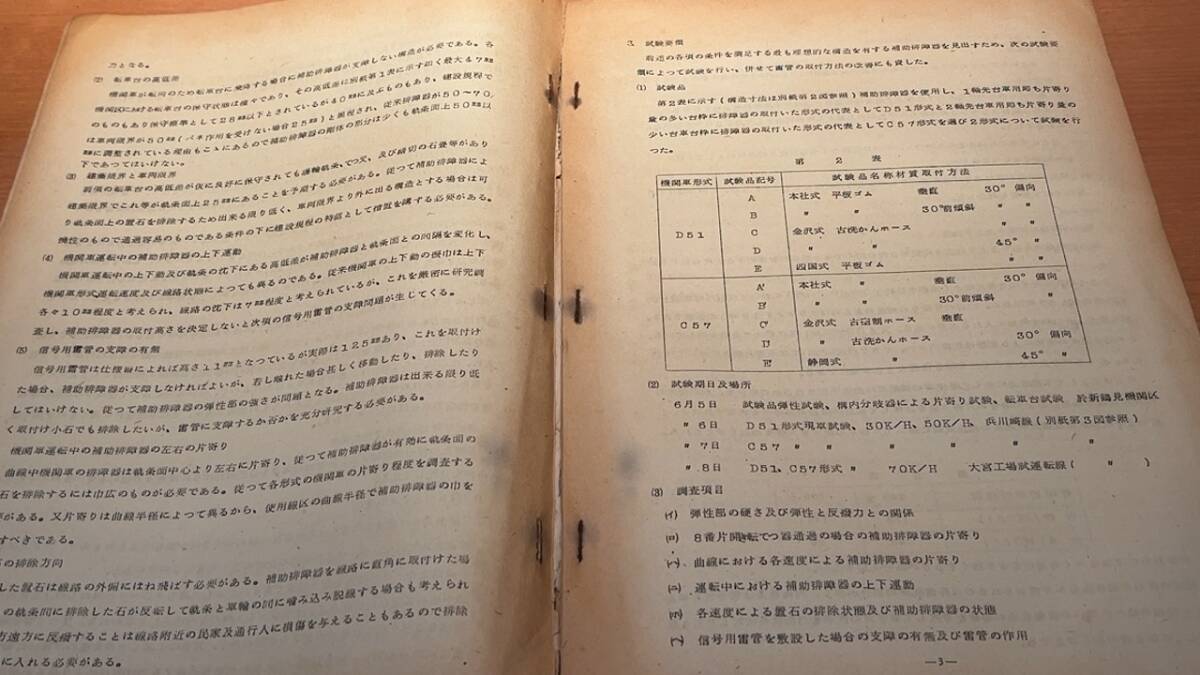 力となる。
(2) 転車台の高低差
機関車が転向のため転車台に乗降する場合に補助排障器が支障しない構造が必要である。各
機関区における転車台の保守状態は様々であり、その高低差は別紙第1表に示す如く最大47㎜
のものもあり保守標準として28㎜以下とされているが40㎜に及ぶものもあり、建設規程で
は車両限界が50㎜(バネ作用を受けない場合25㎜)と規程され、従来排障器が50〜70
㎜に調整されている理由もここにあるので補助排障器の剛体の部分は少くも軌条面上50㎜以
下であつてはいけない。
(3) 建築限界と車両限界
前項の転車台の高低差が仮に良好に保守されても護輪軌条、てつ叉、及び踏切の石畳等があり
建築限界でこれ等が軌条面上25㎜にあることを予慮する必要がある。従つて補助排障器によ
り軌条面上の置石を排除するため出来る限り低く、車両限界より外に出る構造とする場合は可
撓性のもので通過容易のものである条件の下に建設規程の特認として措置を講する必要がある。
(4) 機関車運転中の補助排障器の上下運動
機関車運転中の上下動及び軌条の沈下にある高低差が補助排障器と軌条面との間隔を変化し、
機関車形式運転速度及び線路状態によつても異るのである。従来機関車の上下動の振巾は上下
各々10㎜程度と考えられ、線路の沈下は7㎜程度と考えられているが、これを厳密に研究調
査し、補助排障器の取付高さを決定しないと次項の信号用雷管の支障問題が生じてくる。
(5) 信号用雷管の支障の有無
信号用雷管は仕様書によれば高さ11㎜となつているが実際は125㎜あり、これを取付け
た場合、補助排障器が支障しなければよいが、若し触れた場合甚しく移動したり、排除したり
してはいけない。従つて補助排障器の弾性部の強さが問題となる。補助排障器は出来る限り低
く取付け小石でも排除したいが、雷管に支障するか否かを充分研究する必要がある。
機関車運転中の補助排障器の左右の片寄り
曲線中機関車の排障器は軌条面中心より左右に片寄り、従つて補助排障器が有効に軌条面の
石を排除するには巾広のものが必要である。従つて各形式の機関車の片寄り程度を調査する
がある。又片寄りは曲線半径によつて異るから、使用線区の曲線半径で補助排障器の巾を
すべきである。
の排除方向
した置石は線路の外側にはね飛ばす必要がある。補助排障器を線路に直角に取付けた場
の軌条間に排除した石が反転して軌条と車輪の間に噛み込み脱線する場合も考えられ
方遠方に反撥することは線路附近の民家及通行人に損傷を与えることもあるので排除
に入れる必要がある。
3. 試験要領
前述の各項の条件を満足する最も理想的な構造を有する補助排障器を見出すため、次の試験要
領によつて試験を行い、併せて雷管の取付方法の改善にも資した。
(1) 試験品
第2表に示す(構造寸法は別紙第2図参照)補助排障器を使用し、1軸先台車用即ち片寄り
量の多い台枠に排障器の取付いた形式の代表としてD51形式と2軸先台車用即ち片寄り量の
少い台車台枠に排障器の取付いた形式の代表としてC57形式を選び2形式について試験を行
つた。
第 2 表
機関車形式 試験品記号 試験品名称材質取付方法
D51 A 本社式 平板ゴム 垂直 30° 偏向
B 〃 〃 30°前傾斜 〃 〃
C 金沢式 古洗かんホース 〃 〃
D 〃 〃 45° 〃
E 四国式 平板ゴム 〃 〃
C57 A' 本社式 〃 垂直 30° 偏向
B' 〃 〃 30°前傾斜 〃
C' 金沢式 古制ホース 垂直
D' 〃 古洗かんホース 30° 偏向
E' 静岡式 〃 45° 〃
(2) 試験期日及場所
6月5日 試験品弾性試験、構内分岐器による片寄り試験、転車台試験 於新鶴見機関区
〃 6日 D51形式現車試験、30K/H、50K/H、浜川崎線(別紙第3図参照)
〃 7日 C57 〃 〃 〃 〃 ( 〃 )
〃 8日 D51、C57形式 〃 70K/H 大宮工場試運転線( 〃 )
(3) 調査項目
(イ) 弾性部の硬さ及び弾性と反撥力との関係
(ロ) 8番片開転てつ器通過の場合の補助排障器の片寄り
(ハ) 曲線における各速度による補助排障器の片寄り
(ニ) 運転中における補助排障器の上下運動
(ホ) 各速度による置石の排除状態及び補助排障器の状態
(ヘ) 信号用雷管を敷設した場合の支障の有無及び雷管の作用
—3—